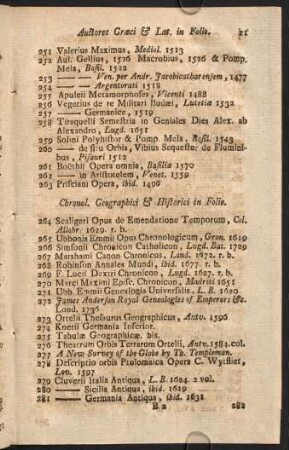 Auctores Græci & Lat. in Folio. 21
251 Valerius Maximus, Mediol. 1513
252 Aul. Gellius, 1526 Macrobius, 1526 & Pomp.
Mela, Basil. 1522
253 —— —— Ven. per Andr. Jacobicatharensem, 1477
254 —— —— Argentorati 1518
255 Apuleii Metamorphoses, Vicenti 1488
256 Vegetius de re Militari Budæi, Lutetiæ 1532
257 —— Germanice, 1519
258 Tiraquelli Semestria in Geniales Dies Alex. ab
Alexandro, Lugd. 1651
259 Solini Polyhistor & Pomp. Mela, Basil. 1543
260 —— de situ Orbis, Vibius Sequester de Flumini-
bus, Pisauri 1512
261 Boëthii Opera omnia, Basiliæ 1570
262 —— in Aristotelem, Venet. 1559
263 Prisciani Opera, ibid. 1496
Chronol. Geographici & Historici in Folio.
264 Scaligeri Opus de Emendatione Temporum, Col.
Allobr. 1629. r. b.
265 Ubbonis Emmii Opus Chronologicum, Gron. 1619
266 Simsonii Chronicon Catholicon, Lugd. Bat. 1729
267 Marshami Canon Chronicus, Lond. 1672. r. b.
268 Robinson Annales Mundi, ibid. 1677. r. b.
269 F. Lucii Dextri Chronicon, Lugd. 1627. r. b.
270 Marci Maximi Episc. Chronicon, Madriti 1651
271 Ubb. Emmii Genealogia Universalis, L. B. 1620
272 James Anderson Royal Genealogies of Emperors &c.
Lond. 1736
273 Ortelii Thesaurus Geographicus, Antv. 1596
274 Koerii Germania Inferior.
275 Tabulæ Geographicæ. bis.
276 Theatrum Orbis Terrarum Ortelii, Antv. 1584. col.
277 A New Survey of the Globe by Th. Templeman.
278 Descriptio orbis Ptolomaica Opera C. Wytfliet,
Lov. 1597
279 Cluverii Italia Antiqua, L. B. 1624. 2 vol.
280 —— Sicilia Antiqua, ibid. 1619
281 —— Germania Antiqua, ibid. 1631
B 2 282